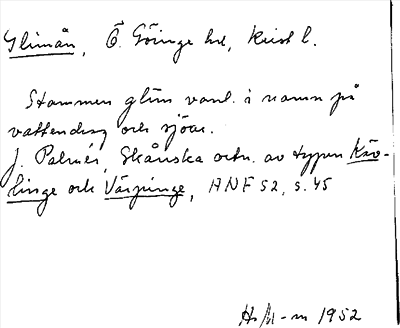 Glimån, Ö. Göinge hd, Krist l.
Stammen glim vanl. i namn på
vattendrag och sjöar.
J. Palmér, Skånska ortn. av typen Käv-
linge och Värpinge, ANF 52, s. 45
1952